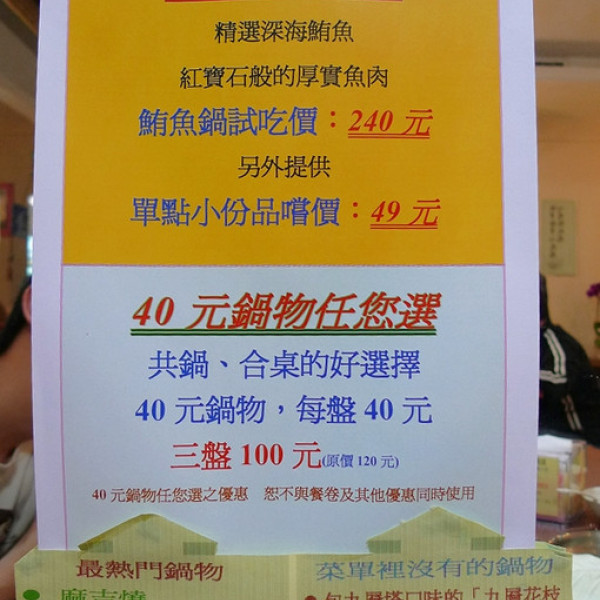 精選深海鮪魚
紅寶石般的厚實魚肉
鮪魚鍋試吃價：240 元
另外提供
單點小份品嚐價：49 元
40 元鍋物任您選
共鍋、合桌的好選擇
40 元鍋物，每盤 40 元
三盤 100 元(原價 120 元)
40 元鍋物任您選之優惠　恕不與餐卷及其他優惠同時使用
最熱門鍋物
菜單裡沒有的鍋物
麻吉燒
包九層塔口味的「九層花枝